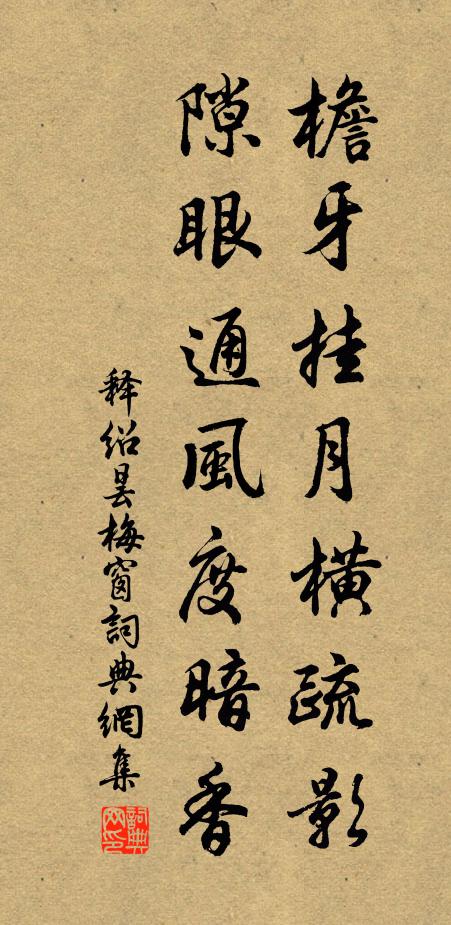 檐牙挂月橫疏影
隙眼通風度暗香
释紹曇梅窗詞典網集
詞典网印